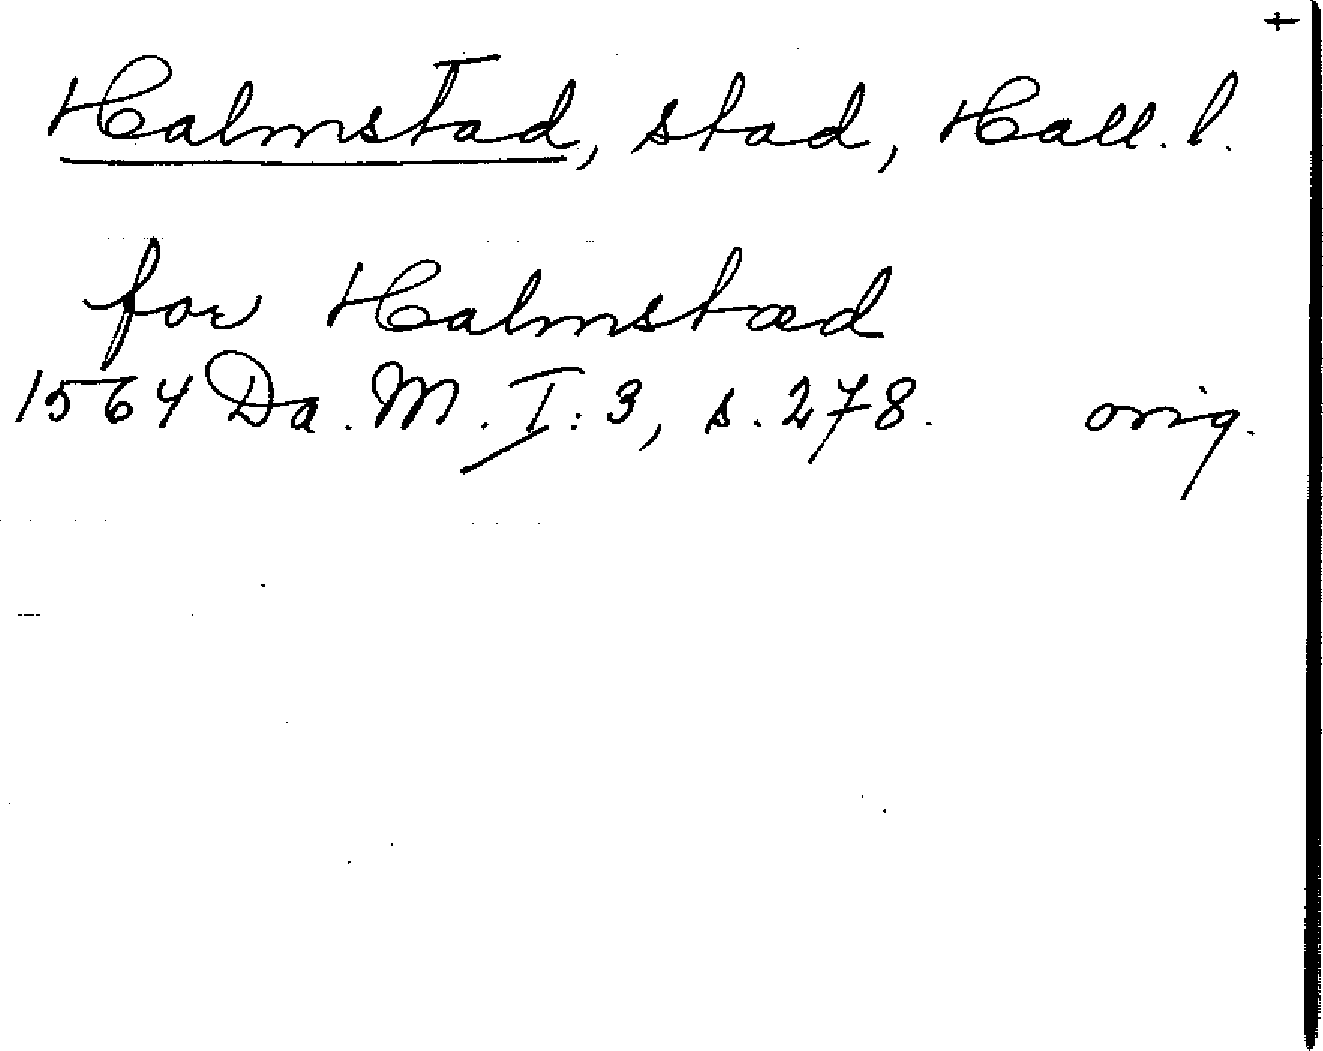 Halmstad, stad, Hall. l.
for Halmstæd
1564 Da. M. I: 3, s. 278. orig.